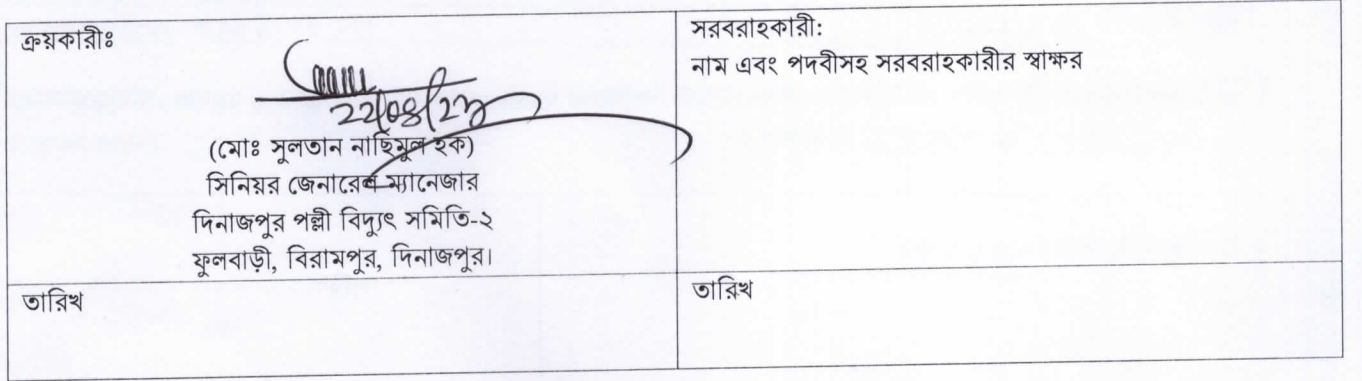 ক্রয়কারীঃ
22/08/23
(মোঃ সুলতান নাছিমুল হক)
সিনিয়র জেনারেল ম্যানেজার
দিনাজপুর পল্লী বিদ্যুৎ সমিতি-২
ফুলবাড়ী, বিরামপুর, দিনাজপুর।
সরবরাহকারী:
নাম এবং পদবীসহ সরবরাহকারীর স্বাক্ষর
তারিখ
তারিখ